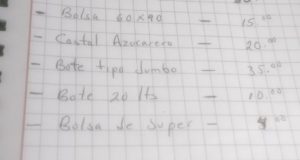 - Bolsa 60x90 - 15.00
- Costal Azucarero - 20.00
- Bote tipo Jumbo - 35.00
- Bote 20 lts - 10.00
- Bolsa de Super - 4.00